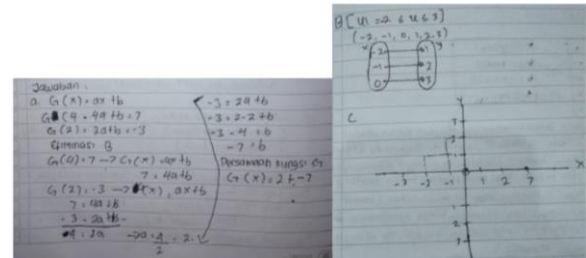 Jawaban:
a. G(x) = ax + b
G (4 = 4a + b = 7
G(2) = 2a + b = -3
Eliminasi B
G(4) = 7 -> G(x) = ax + b
7 = 4a + b
G(2) = -3 -> (x) = ax + b
7 = 4a + b
-3 = 2a + b -
4 = 2a -> a = 4/2 = 2
-3 = 2a + b
-3 = 2-2 + b
-3 - 4 = b
-7 = b
Persamaan Fungsi G
G(x) = 2 + -7
(-2, -1, 0, 1, 2, 3)
-2 1
-1 2
0 3
C
Y
-3 -2 -1 1 2 7 X